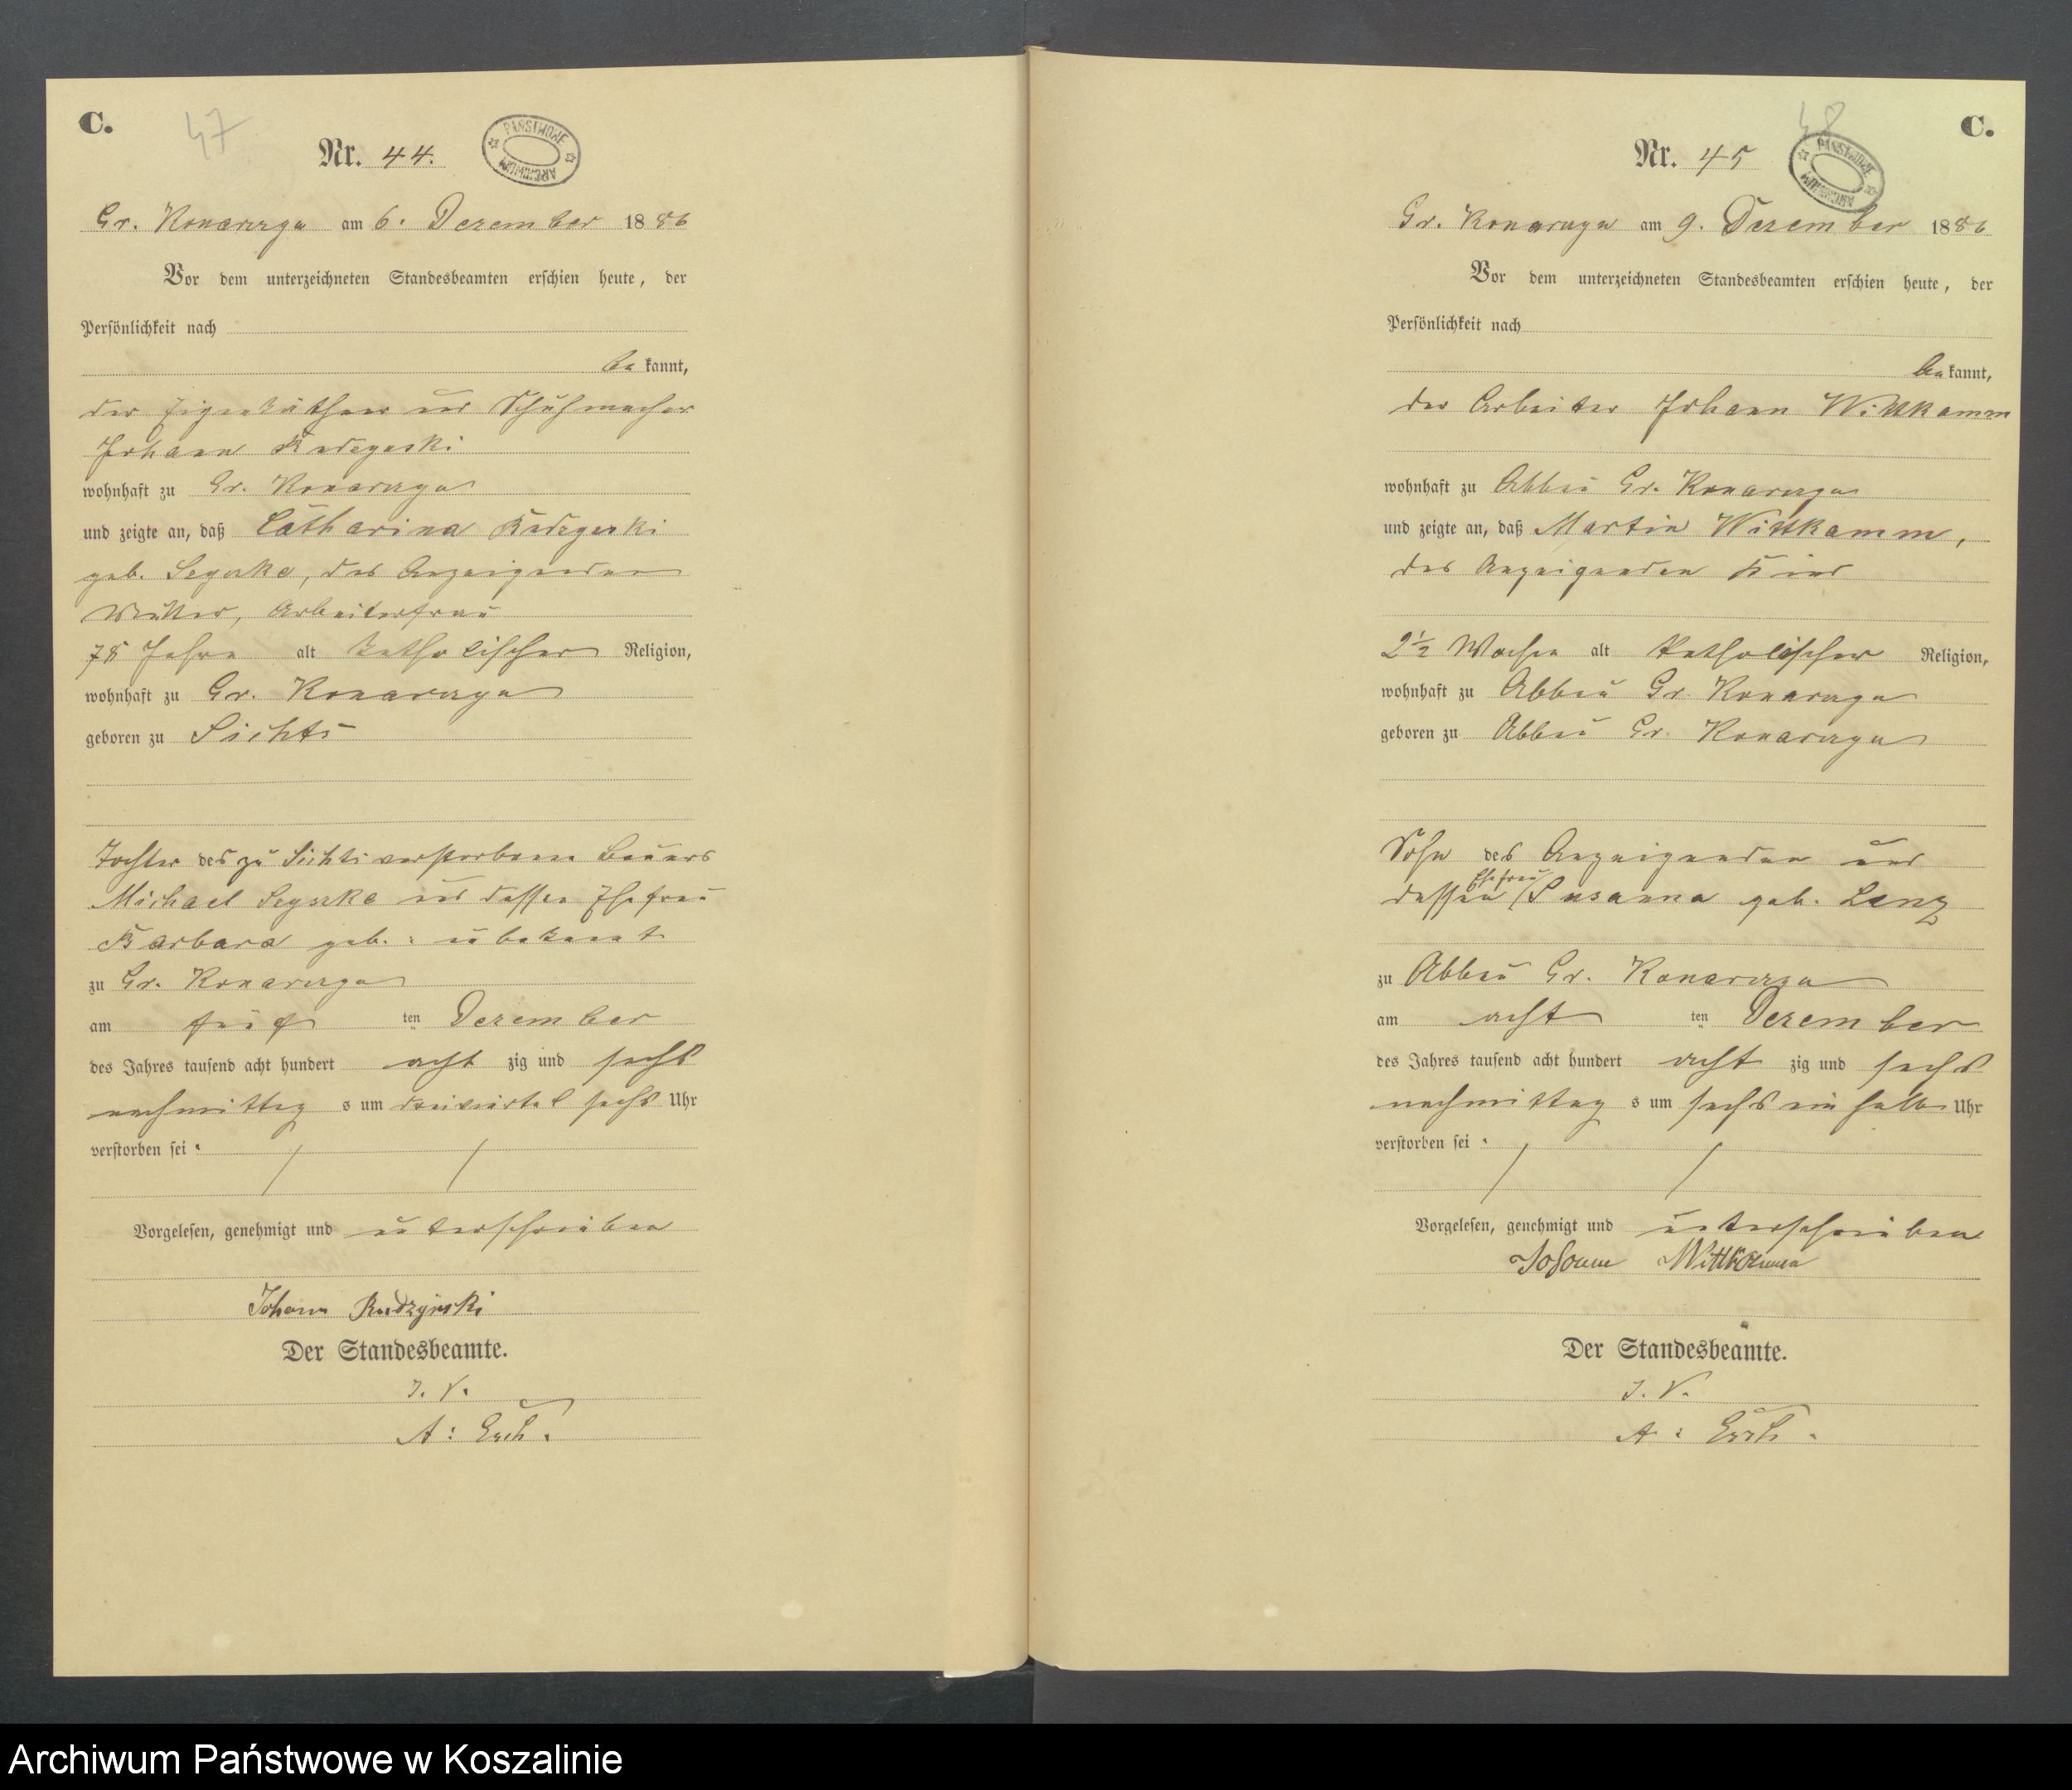 C.
47
Nr. 44.
PAŃSTWOWE ARCHIWUM
Gr. Konarczyn am 6. Dezember 1886
Vor dem unterzeichneten Standesbeamten erschien heute, der
Persönlichkeit nach
be kannt,
der Eigenkäthner und Schuhmacher
Johann
wohnhaft zu Gr. Konarczyn
und zeigte an, daß Catharina
geb. des Anzeigenden
Mutter, Arbeiterfrau
78 Jahre alt katholischer Religion,
wohnhaft zu Gr. Konarczyn
geboren zu Sichts
Tochter des zu Sichts verstorbenen Bauers
Michael und dessen Ehefrau
Barbara geb.: unbekannt
zu Gr. Konarczyn
am fünf ten Dezember
des Jahres tausend acht hundert acht zig und sechs
nachmittag s um dreiviertel sechs Uhr
verstorben sei.
Vorgelesen, genehmigt und unterschrieben
Johann Rudzynski
Der Standesbeamte.
I. V.
A:
C.
48
Nr. 45
PAŃSTWOWE ARCHIWUM
Gr. Konarczyn am 9. Dezember 1886
Vor dem unterzeichneten Standesbeamten erschien heute, der
Persönlichkeit nach
be kannt,
der Arbeiter Johann Wittkamm
wohnhaft zu Abbau Gr. Konarczyn
und zeigte an, daß Martin Wittkamm,
des Anzeigenden Kind
2½ Wochen alt katholischer Religion,
wohnhaft zu Abbau Gr. Konarczyn
geboren zu Abbau Gr. Konarczyn
Sohn des Anzeigenden und
dessen Ehefrau Susanna geb. Lenz
zu Abbau Gr. Konarczyn
am acht ten Dezember
des Jahres tausend acht hundert acht zig und sechs
nachmittag s um sechs ein halb Uhr
verstorben sei.
Vorgelesen, genehmigt und unterschrieben
Johann Wittkamm
Der Standesbeamte.
I. V.
A:
Archiwum Państwowe w Koszalinie